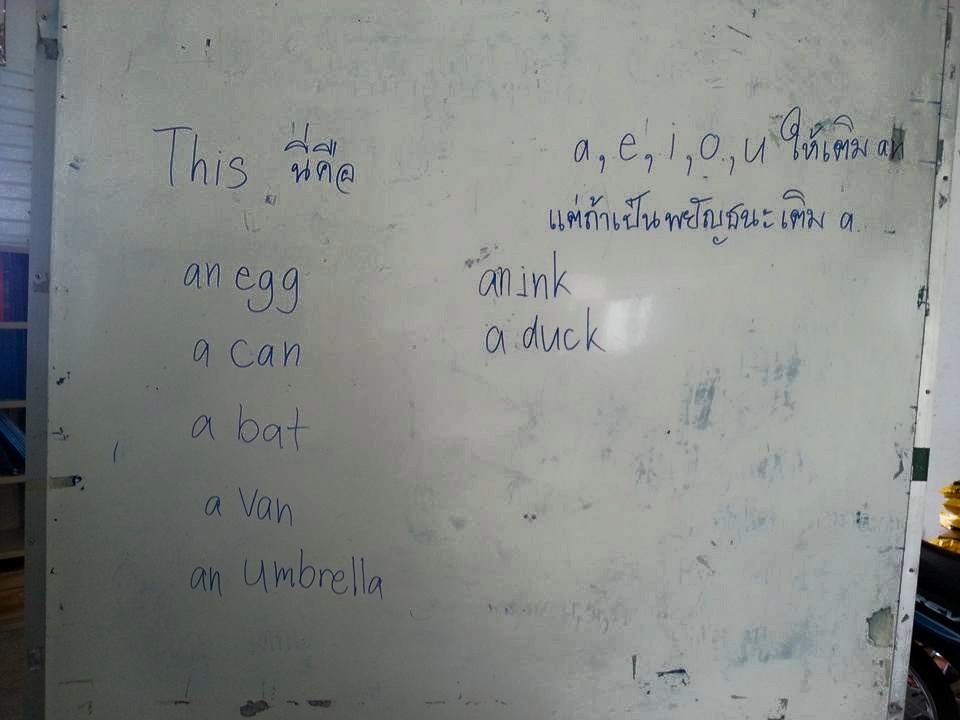 This นี่คือ
a, e, i, o, u ให้เติม an
แต่ถ้าเป็นพยัญธนะเติม a
an egg
a can
a bat
a van
an umbrella
an ink
a duck